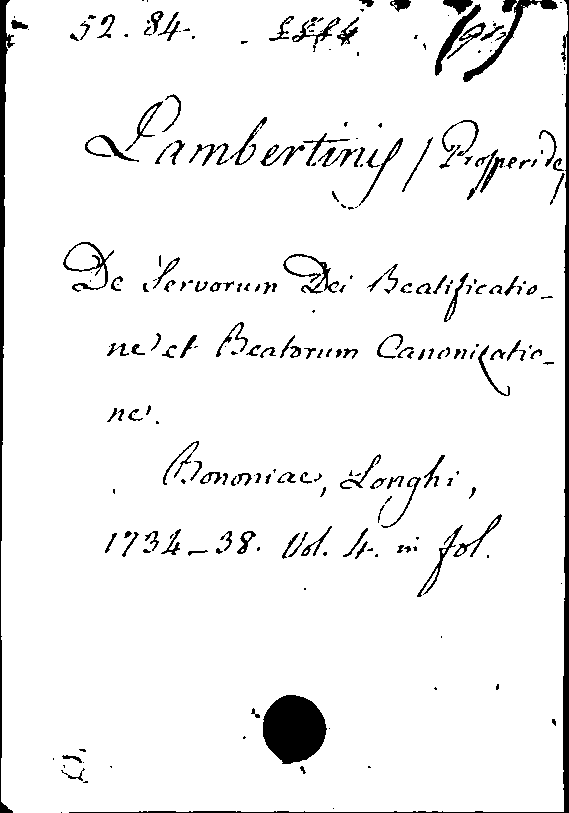 52.84.
Lambertinis / Prosper de /
De Servorum Dei Beatificatio-
ne et Beatorum Canonizatio-
ne.
Bononiae, Longhi,
1734-38. Vol. 4. in fol.